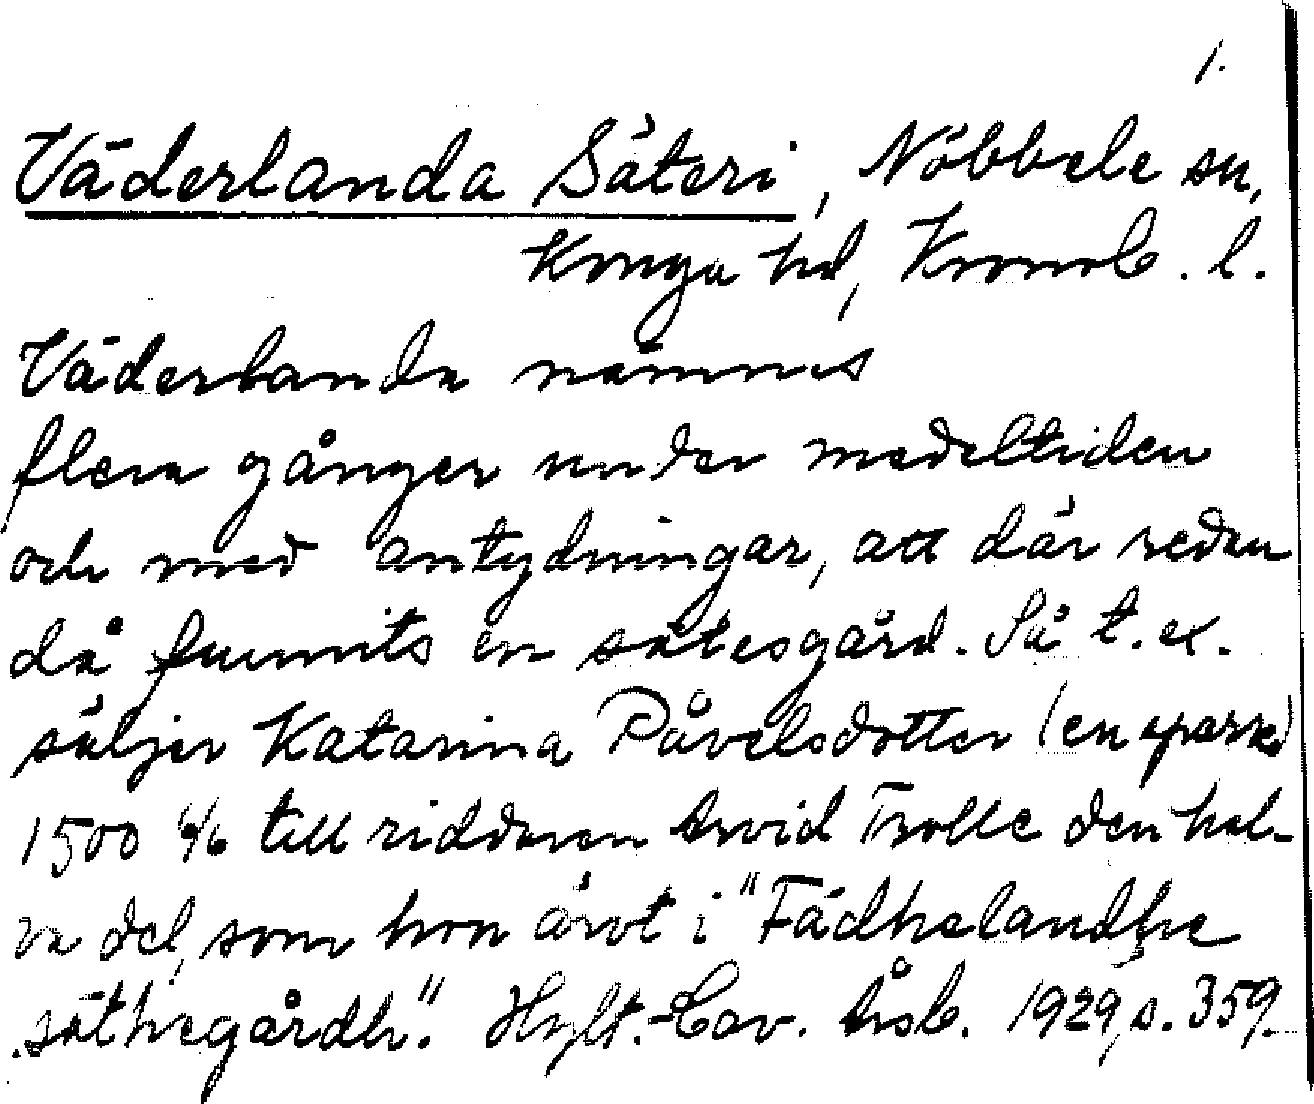 1.
Väderlanda Säteri, Nöbbele sn,
Konga hd, Kronob. l.
Väderlanda nämnes
flera gånger under medeltiden
och med antydningar, att där redan
då funnits en sätesgård. Så t. ex.
säljer Katarina Påvelsdotter (en sparre)
1500 6/6 till riddaren Arvid Trolle den hal-
va del, som hon ärvt i "Fädhelandhe
säthegårdh". Hylt.-Cav. Årsb. 1929, s. 359.